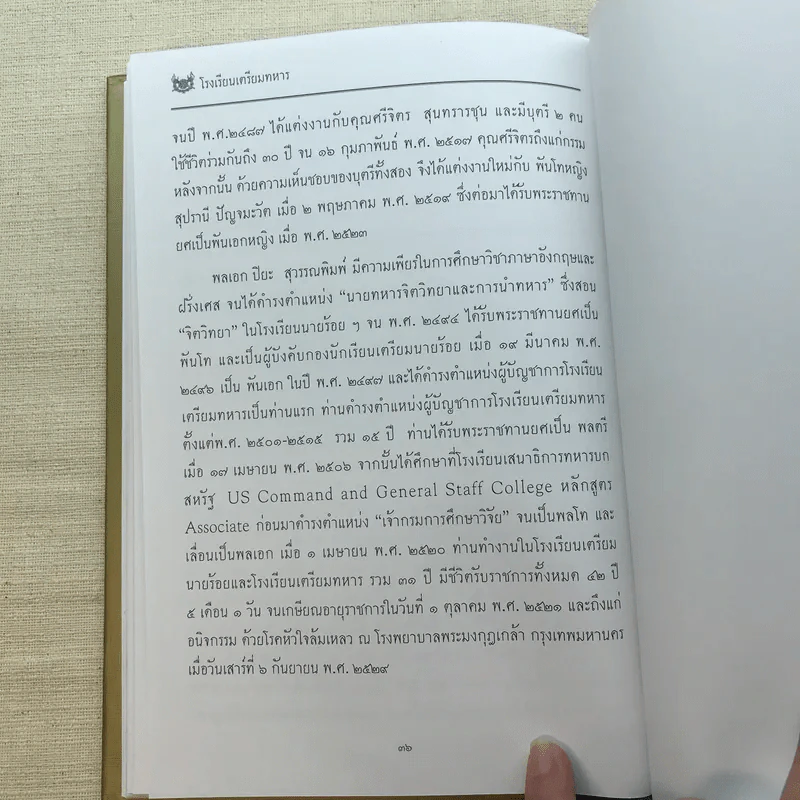 โรงเรียนเตรียมทหาร
จนปี พ.ศ.๒๔๘๗ ได้แต่งงานกับคุณศรีจิตร สุนทรารชุน และมีบุตรี ๒ คน
ใช้ชีวิตร่วมกันถึง ๓๐ ปี จน ๑๖ กุมภาพันธ์ พ.ศ. ๒๕๑๗ คุณศรีจิตรถึงแก่กรรม
หลังจากนั้น ด้วยความเห็นชอบของบุตรีทั้งสอง จึงได้แต่งงานใหม่กับ พันโทหญิง
สุปรานี ปัญจมะวัต เมื่อ ๒ พฤษภาคม พ.ศ. ๒๕๑๙ ซึ่งต่อมาได้รับพระราชทาน
ยศเป็นพันเอกหญิง เมื่อ พ.ศ. ๒๕๒๓
พลเอก ปิยะ สุวรรณพิมพ์ มีความเพียรในการศึกษาวิชาภาษาอังกฤษและ
ฝรั่งเศส จนได้ดำรงตำแหน่ง “นายทหารจิตวิทยาและการนำทหาร” ซึ่งสอน
“จิตวิทยา” ในโรงเรียนนายร้อย ฯ จน พ.ศ. ๒๔๙๔ ได้รับพระราชทานยศเป็น
พันโท และเป็นผู้บังคับกองนักเรียนเตรียมนายร้อย เมื่อ ๑๙ มีนาคม พ.ศ.
๒๔๙๖ เป็น พันเอก ในปี พ.ศ. ๒๔๙๗ และได้ดำรงตำแหน่งผู้บัญชาการโรงเรียน
เตรียมทหารเป็นท่านแรก ท่านดำรงตำแหน่งผู้บัญชาการโรงเรียนเตรียมทหาร
ตั้งแต่พ.ศ. ๒๕๐๑-๒๕๑๕ รวม ๑๕ ปี ท่านได้รับพระราชทานยศเป็น พลตรี
เมื่อ ๑๗ เมษายน พ.ศ. ๒๕๐๖ จากนั้นได้ศึกษาที่โรงเรียนเสนาธิการทหารบก
สหรัฐ US Command and General Staff College หลักสูตร
Associate ก่อนมาดำรงตำแหน่ง “เจ้ากรมการศึกษาวิจัย” จนเป็นพลโท และ
เลื่อนเป็นพลเอก เมื่อ ๑ เมษายน พ.ศ. ๒๕๒๐ ท่านทำงานในโรงเรียนเตรียม
นายร้อยและโรงเรียนเตรียมทหาร รวม ๓๑ ปี มีชีวิตรับราชการทั้งหมด ๔๒ ปี
๕ เดือน ๑ วัน จนเกษียณอายุราชการในวันที่ ๑ ตุลาคม พ.ศ. ๒๕๒๑ และถึงแก่
อนิจกรรม ด้วยโรคหัวใจล้มเหลว ณ โรงพยาบาลพระมงกุฎเกล้า กรุงเทพมหานคร
เมื่อวันเสาร์ที่ ๖ กันยายน พ.ศ. ๒๕๒๙
๓๖